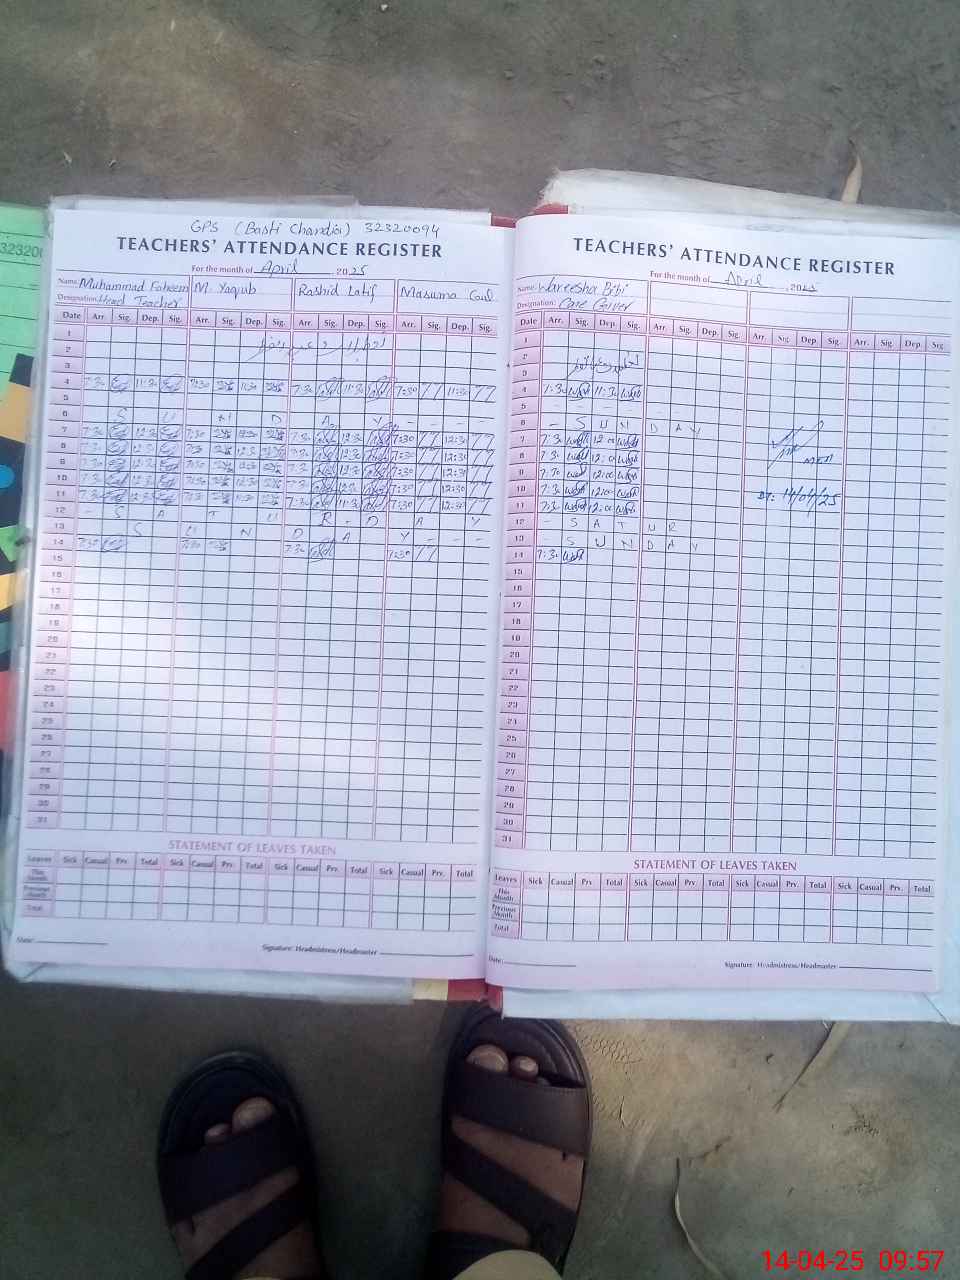 32320
GPS (Basti Chandia) 32320094
TEACHERS' ATTENDANCE REGISTER
For the month of April, 2025
Name: Muhammad Faheem M. Yaqub Rashid Latif Masuma Gul
Designation: Head Teacher
Date Arr. Sig. Dep. Sig. Arr. Sig. Dep. Sig. Arr. Sig. Dep. Sig. Arr. Sig. Dep. Sig.
1
2
3
4 7:30 11:30 7:30 11:30 7:30 11:30 7:30 11:30
5
6 S U N D A Y
7 7:30 12:30 7:30 12:30 7:30 12:30 7:30 12:30
8 7:30 12:30 7:30 12:30 7:30 12:30 7:30 12:30
9 7:30 12:30 7:30 12:30 7:30 12:30 7:30 12:30
10 7:30 12:30 7:30 12:30 7:30 12:30 7:30 12:30
11 7:30 12:30 7:30 12:30 7:30 12:30 7:30 12:30
12 - S A T U R - D A Y
13 S U N D A Y - - -
14 7:30 7:30 7:30 7:30
15
16
17
18
19
20
21
22
23
24
25
26
27
28
29
30
31
STATEMENT OF LEAVES TAKEN
Leaves Sick Casual Prv. Total Sick Casual Prv. Total Sick Casual Prv. Total Sick Casual Prv. Total
This Month
Previous Month
Total
Date: Signature: Headmistress/Headmaster
TEACHERS' ATTENDANCE REGISTER
For the month of April, 2025
Name: Wareesha Bibi
Designation: Care Giver
Date Arr. Sig. Dep. Sig. Arr. Sig. Dep. Sig. Arr. Sig. Dep. Sig. Arr. Sig. Dep. Sig.
1
2
3
4 7:30 11:30
5 - - - - - - -
6 - S U N D A Y
7 7:30 12:00
8 7:30 12:00
9 7:30 12:00
10 7:30 12:00
11 7:30 12:00
Dt: 14/04/25
12 - S A T U R
13 S U N D A Y
14 7:30
15
16
17
18
19
20
21
22
23
24
25
26
27
28
29
30
31
STATEMENT OF LEAVES TAKEN
Leaves Sick Casual Prv. Total Sick Casual Prv. Total Sick Casual Prv. Total Sick Casual Prv. Total
This Month
Previous Month
Total
Date: Signature: Headmistress/Headmaster
14-04-25 09:57